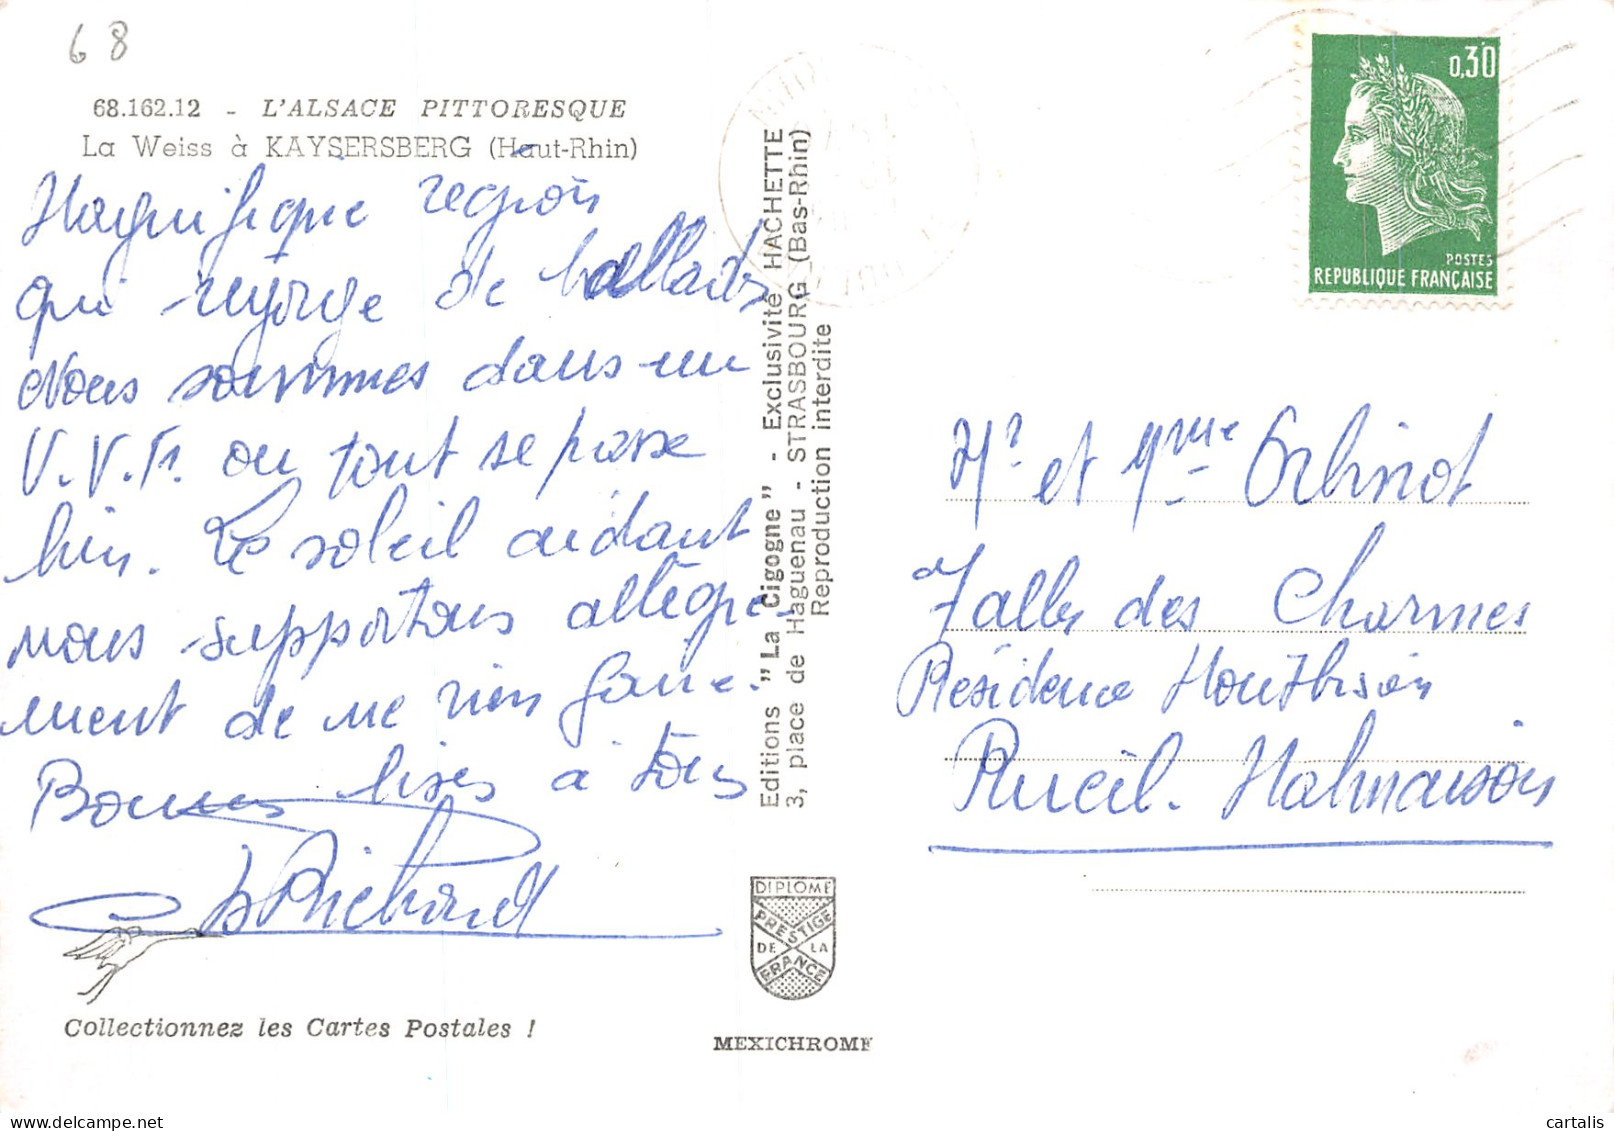 68
68.162.12 - L'ALSACE PITTORESQUE
La Weiss à KAYSERSBERG (Haut-Rhin)
Magnifique région
qui regorge de ballades
Nous sommes dans un
V.V.F. où tout se passe
bien. Le soleil aidant
nous supportons allègre-
ment de ne rien faire.
Bonnes bises à tous
Richard
Collectionnez les Cartes Postales !
Editions "La Cigogne" - Exclusivité HACHETTE
3, place de Haguenau - STRASBOURG (Bas-Rhin)
Reproduction interdite
DIPLOME
PRESTIGE
DE LA
FRANCE
MEXICHROME
0,30
POSTES
REPUBLIQUE FRANÇAISE
Mr et Mme Orbinot
7 allée des Charmes
Résidence Montbrison
Rueil-Malmaison
cartalis